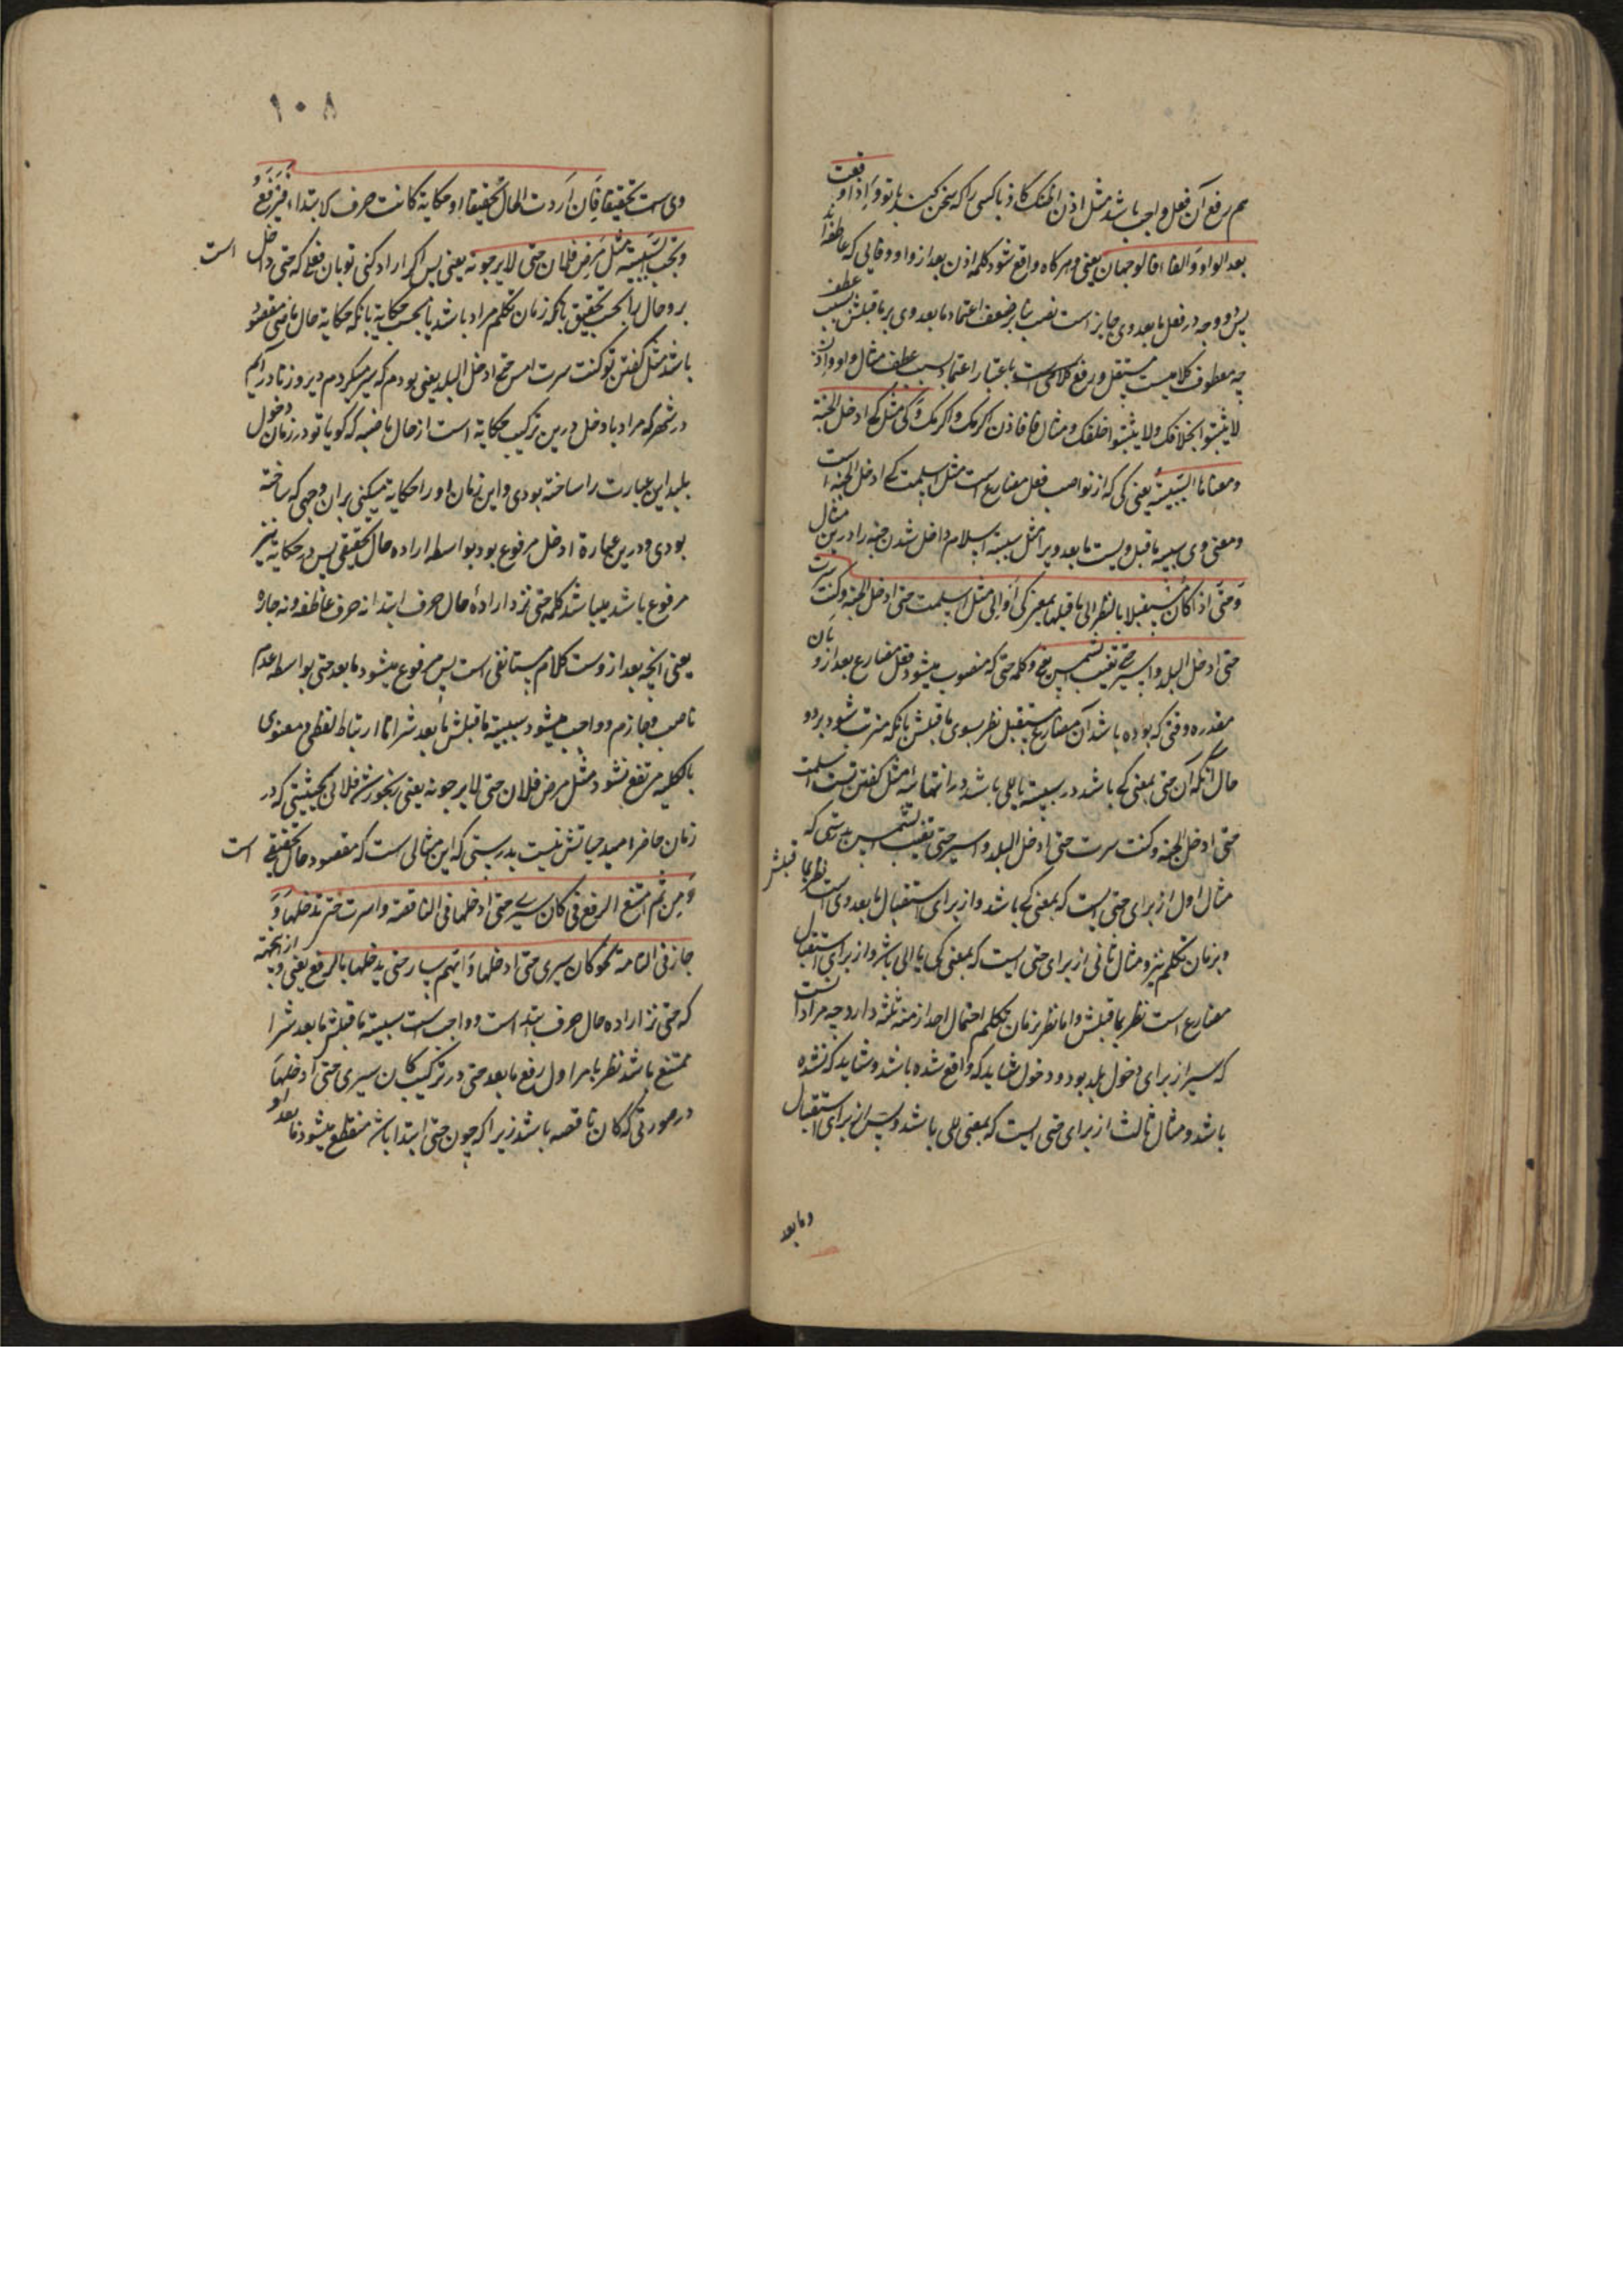 هم رفع آن فعل واجب باشد مثل اذن اظنک کاذبا کسی را که سخن کند با تو و اذا وقعت
بعد الواو و الفاء فالوجهان یعنی و هرکاه واقع شود کلمه اذن بعد از واو و فایی که عاطفه‌اند
پس دو وجه در فعل ما بعد وی جایز است نصب بنا بر ضعف اعتماد ما بعد وی بر ما قبلش بسبب عطف
چه معطوف کلامیست مستقل و رفع باعتبار اعتماد بسبب عطف مثال واو و اذن
لا یلبثوا خلافک و لا یلبثوا خلفک و مثال فا فاذن اکرمک و اکرمک و کی مثل کی ادخل الجنة
و معناها السببیة یعنی کی که از نواصب فعل مضارع است مثل اسلمت کی ادخل الجنة است
و معنی وی سببیة ما قبل ویست ما بعد ویرا مثل سببیة اسلام داخل شدن جنه را درین مثال
و حتی اذا کان مستقبلا بالنظر الی ما قبلها بمعنی کی او الی مثل اسلمت حتی ادخل الجنة و کنت سرت
حتی ادخل البلد و اسیر حتی تغیب الشمس و کلمه حتی که منصوب میشود فعل مضارع بعد از و بان
مقدره وقتی که بوده باشد آن مضارع مستقبل نظر بسوی ما قبلش بانکه مترتب شود برو
حال آنکه آن حتی بمعنی کی باشد در سببیة یا الی باشد در انتهائیة مثل کفتن تست اسلمت
حتی ادخل الجنه و کنت سرت حتی ادخل البلد و اسیر حتی تغیب الشمس بدرستی که
مثال اول از برای حتی است که بمعنی کی باشد و از برای استقبال ما بعد وی است نظر بما قبلش
و بزمان تکلم نیز و مثال ثانی از برای حتی است که بمعنی کی یا الی باشد و از برای استقبال
مضارع است نظر بما قبلش و اما نظر بزمان تکلم احتمال احد ازمنه ثلثه دارد چه مراد آنست
که سیر از برای دخول بلد بود و دخول شاید که واقع شده باشد و شاید که نشده
باشد و مثال ثالث از برای حتی است که بمعنی الی باشد و پس از برای استقبال
و ما بعد
۱۰۸
وی است تحقیقا فان اردت الحال تحقیقا او حکایة کانت حرف ابتداء فیرفع و
و تجب السببیة مثل مرض فلان حتی لا یرجونه یعنی پس اکر اراده کنی تو بان فعلی که حتی داخل است
برو حال را بحسب تحقیق بانکه زمان تکلم مراد باشد یا بحسب حکایة بانکه حکایة حال ماضی مقصود
باشد مثل کفتن تو کنت سرت امس حتی ادخل البلد یعنی بودم که سیر میکردم دیروز تا درآیم
در شهر که مراد بادخل درین ترکیب حکایة است از حال ماضیه که کویا تو در زمان دخول
بلد این عبارت را ساخته بودی و این زمان او را حکایة میکنی بران وجهی که ساخته
بودی و درین عبارة ادخل مرفوع بود بواسطه اراده حال تحقیقی پس در حکایة نیز
مرفوع باشد میباشد کلمه حتی نزد ارادهٔ حال حرف ابتدا نه حرف عاطفه و نه جاره
یعنی آنچه بعد از وست کلام مستانفی است پس مرفوع میشود ما بعد حتی بواسطه عدم
ناصب و جازم و واجب میشود سببیة ما قبلش ما بعدش را تا ارتباط لفظی و معنوی
بالکلیه مرتفع نشود مثل مرض فلان حتی لا یرجونه یعنی رنجور شد فلانی بحیثیتی که در
زمان حاضر امید حیاتش نیست بدرستی که این مثالی است که مقصود حال تحقیقی است
و من ثم امتنع الرفع فی کان سیری حتی ادخلها فی الناقصة و اسرت حتی تدخلها و
جاز فی التامة نحو کان سیری حتی ادخلها و ایهم سار حتی یدخلها بالرفع یعنی و از این جهة
که حتی نزد اراده حال حرف ابتدا است و واجب است سببیة ما قبلش ما بعدش را
ممتنع باشد نظر بامر اول رفع ما بعد حتی در ترکیب کان سیری حتی ادخلها
در صورتی که کان ناقصه باشد زیرا که چون حتی ابتدا باشد منقطع میشود ما بعد او